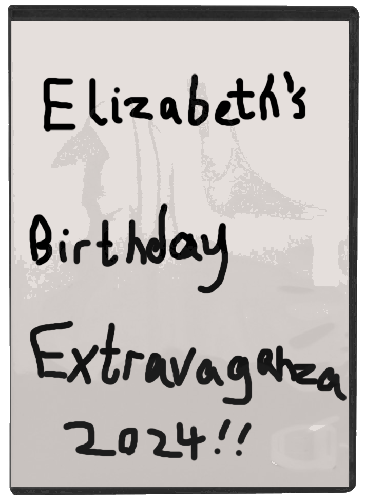 Elizabeth's
Birthday
Extravaganza
2024!!